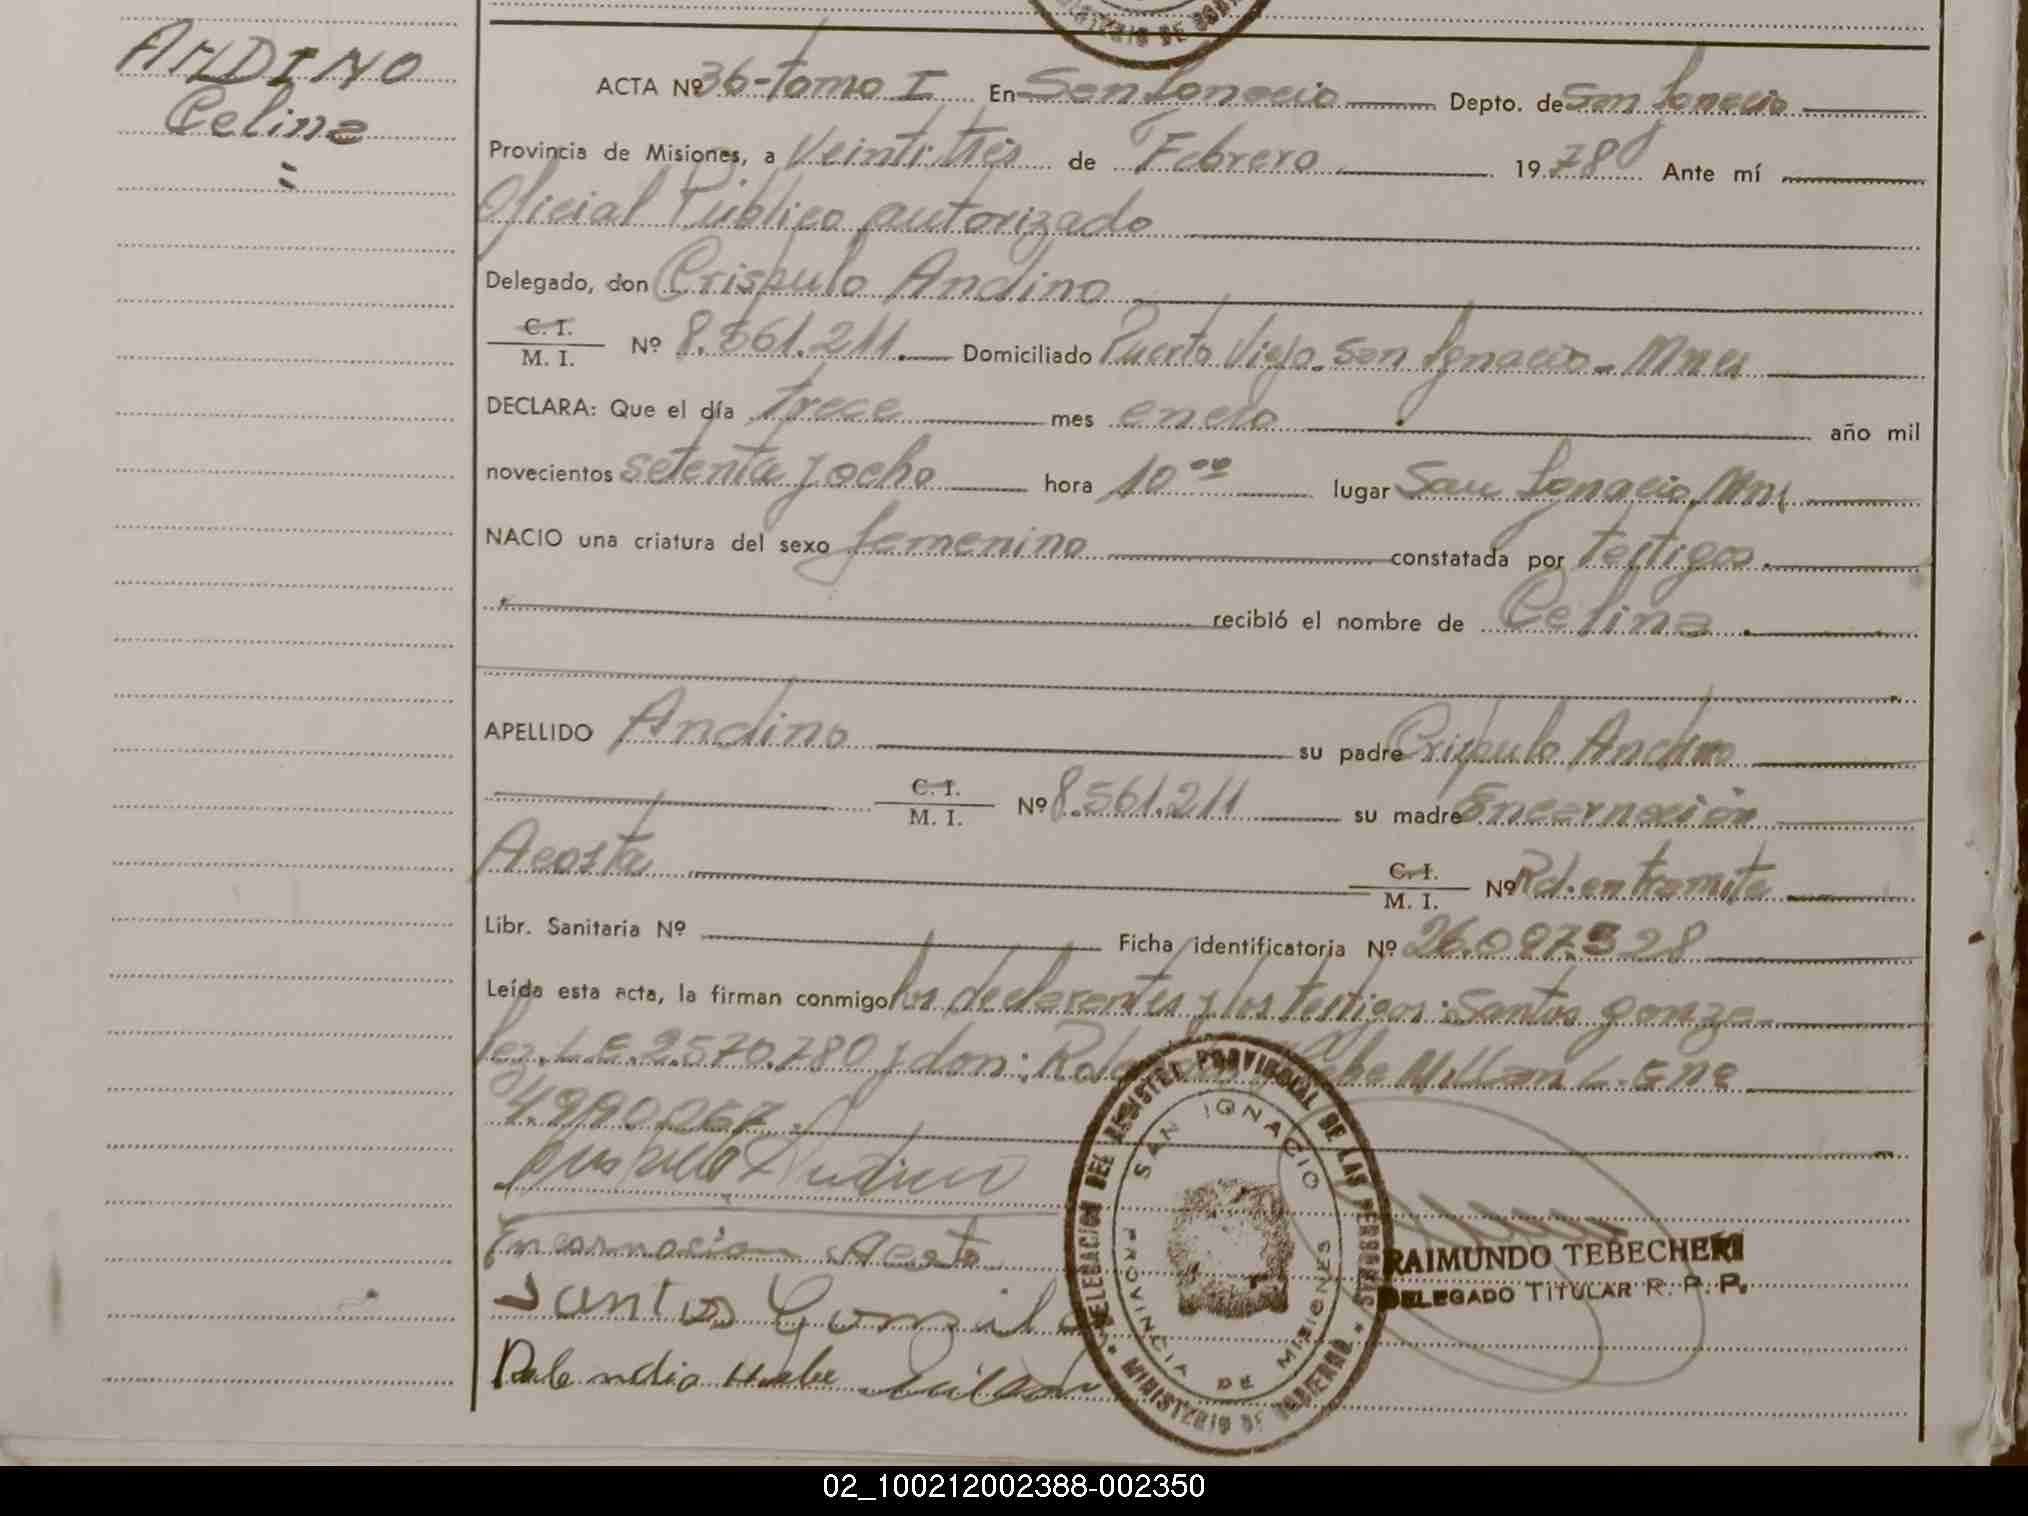 ANDINO
Celina
=
MINISTERIO DE GOBIERNO
ACTA Nº 36-tomo I En San Ignacio Depto. de San Ignacio
Provincia de Misiones, a Veintitrés de Febrero 1978 Ante mí
Oficial Público autorizado
Delegado, don Crispulo Andino
C. I.
M. I. Nº 8.561.211. Domiciliado Puerto Viejo. San Ignacio - Mnes
DECLARA: Que el día trece mes enero año mil
novecientos setenta y ocho hora 10ºº lugar San Ignacio, Mns
NACIO una criatura del sexo femenino constatada por testigos.
recibió el nombre de Celina.
APELLIDO Andino su padre Crispulo Andino
C. I.
M. I. Nº 8.561.211 su madre Encarnación
Acosta C. I.
M. I. Nº Rd. en tramite
Libr. Sanitaria Nº Ficha identificatoria Nº 26.097.328
Leída esta acta, la firman conmigo los declarantes y los testigos: Santos Gonza
lez. L.E. 2.570.780 y don: Millan L. E nº
4.990.067.
Crispulo Andino
Encarnacion Acosta
Santos
Hebe
DELEGACION DEL REGISTRO PROVINCIAL DE LAS PERSONAS
SAN IGNACIO
PROVINCIA DE MISIONES
* MINISTERIO DE GOBIERNO *
RAIMUNDO TEBECHERI
DELEGADO TITULAR R. P. P.
02_100212002388-002350